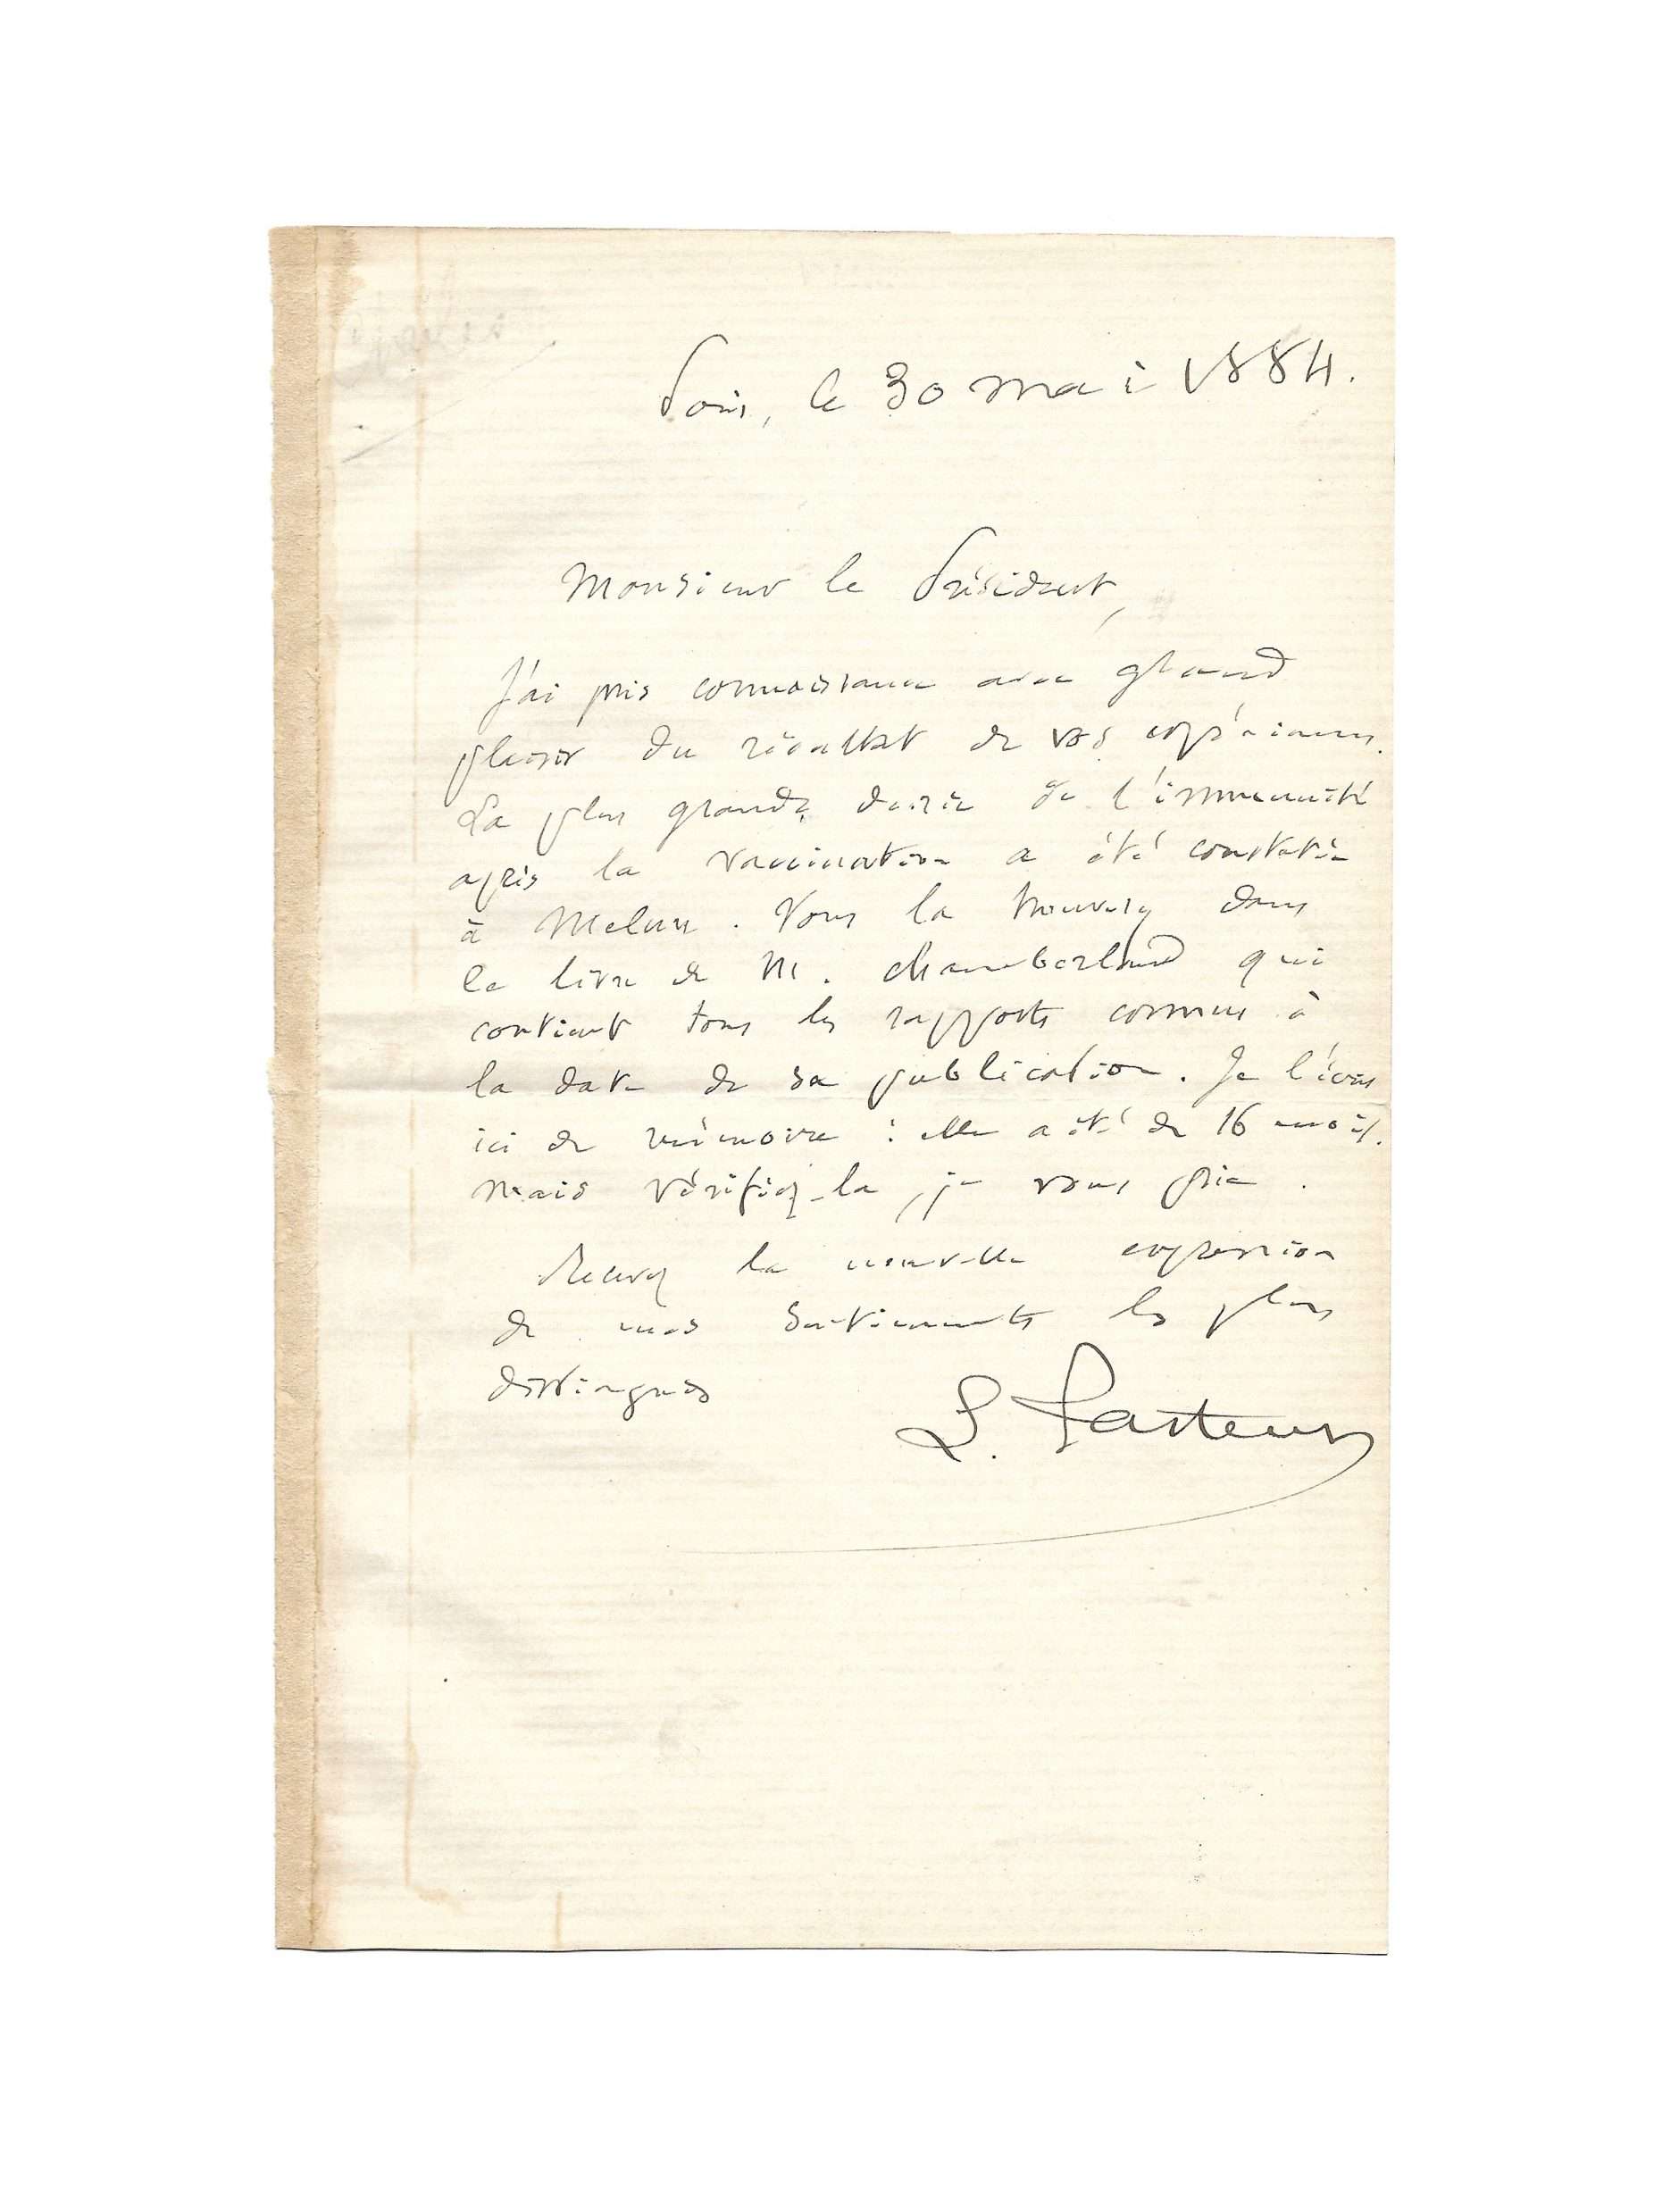 Paris, le 30 mai 1884.
Monsieur le Président,
J'ai pris connaissance avec grand
plaisir du résultat de vos expériences.
La plus grande durée de l'immunité
après la vaccination a été constatée
à Melun. Vous la trouverez dans
le livre de M. Chamberland qui
contient tous les rapports connus à
la date de sa publication. Je l'écris
ici de mémoire : elle a été de 16 mois.
Mais vérifiez-la, je vous prie.
Recevez la nouvelle expression
de mes sentiments les plus
distingués
L. Pasteur